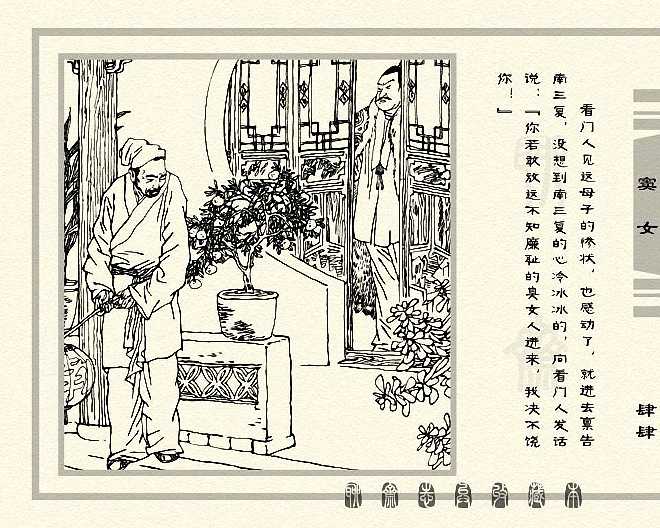 看门人见这母子的惨状，也感动了，就进去禀告
南三复，没想到南三复的心冷冰冰的，向看门人发话
说：“你若敢放这不知廉耻的臭女人进来，我决不饶
你！”
窦女
肆肆